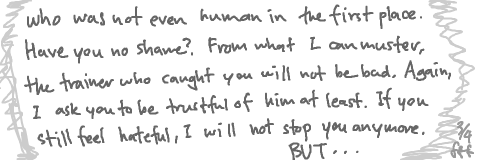 who was not even human in the first place.
Have you no shame?. From what I can muster,
the trainer who caught you will not be bad. Again,
I ask you to be trustful of him at least. If you
still feel hateful, I will not stop you anymore.
BUT...
3/4